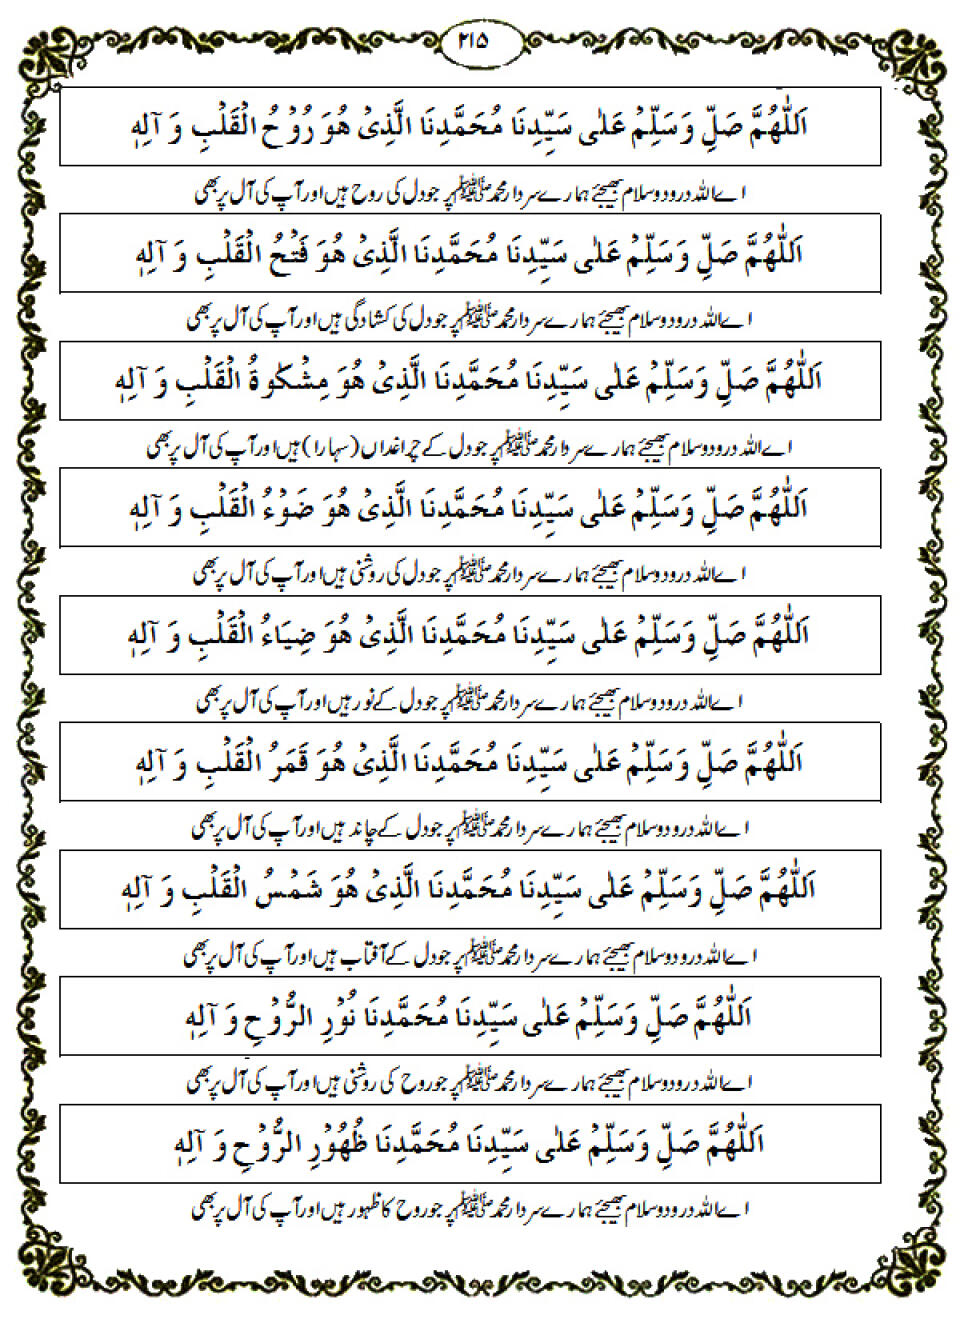 ۲۱۵
اَللّٰهُمَّ صَلِّ وَسَلِّمْ عَلٰى سَيِّدِنَا مُحَمَّدِنَا الَّذِىْ هُوَ رُوْحُ الْقَلْبِ وَ آلِهٖ
اے اللہ درود و سلام بھیجئے ہمارے سردار محمد ﷺ پر جو دل کی روح ہیں اور آپ کی آل پر بھی
اَللّٰهُمَّ صَلِّ وَسَلِّمْ عَلٰى سَيِّدِنَا مُحَمَّدِنَا الَّذِىْ هُوَ فَتْحُ الْقَلْبِ وَ آلِهٖ
اے اللہ درود و سلام بھیجئے ہمارے سردار محمد ﷺ پر جو دل کی کشادگی ہیں اور آپ کی آل پر بھی
اَللّٰهُمَّ صَلِّ وَسَلِّمْ عَلٰى سَيِّدِنَا مُحَمَّدِنَا الَّذِىْ هُوَ مِشْكٰوةُ الْقَلْبِ وَ آلِهٖ
اے اللہ درود و سلام بھیجئے ہمارے سردار محمد ﷺ پر جو دل کے چراغداں (سہارا) ہیں اور آپ کی آل پر بھی
اَللّٰهُمَّ صَلِّ وَسَلِّمْ عَلٰى سَيِّدِنَا مُحَمَّدِنَا الَّذِىْ هُوَ ضَوْءُ الْقَلْبِ وَ آلِهٖ
اے اللہ درود و سلام بھیجئے ہمارے سردار محمد ﷺ پر جو دل کی روشنی ہیں اور آپ کی آل پر بھی
اَللّٰهُمَّ صَلِّ وَسَلِّمْ عَلٰى سَيِّدِنَا مُحَمَّدِنَا الَّذِىْ هُوَ ضِيَاءُ الْقَلْبِ وَ آلِهٖ
اے اللہ درود و سلام بھیجئے ہمارے سردار محمد ﷺ پر جو دل کے نور ہیں اور آپ کی آل پر بھی
اَللّٰهُمَّ صَلِّ وَسَلِّمْ عَلٰى سَيِّدِنَا مُحَمَّدِنَا الَّذِىْ هُوَ قَمَرُ الْقَلْبِ وَ آلِهٖ
اے اللہ درود و سلام بھیجئے ہمارے سردار محمد ﷺ پر جو دل کے چاند ہیں اور آپ کی آل پر بھی
اَللّٰهُمَّ صَلِّ وَسَلِّمْ عَلٰى سَيِّدِنَا مُحَمَّدِنَا الَّذِىْ هُوَ شَمْسُ الْقَلْبِ وَ آلِهٖ
اے اللہ درود و سلام بھیجئے ہمارے سردار محمد ﷺ پر جو دل کے آفتاب ہیں اور آپ کی آل پر بھی
اَللّٰهُمَّ صَلِّ وَسَلِّمْ عَلٰى سَيِّدِنَا مُحَمَّدِنَا نُوْرِ الرُّوْحِ وَ آلِهٖ
اے اللہ درود و سلام بھیجئے ہمارے سردار محمد ﷺ پر جو روح کی روشنی ہیں اور آپ کی آل پر بھی
اَللّٰهُمَّ صَلِّ وَسَلِّمْ عَلٰى سَيِّدِنَا مُحَمَّدِنَا ظُهُوْرِ الرُّوْحِ وَ آلِهٖ
اے اللہ درود و سلام بھیجئے ہمارے سردار محمد ﷺ پر جو روح کا ظہور ہیں اور آپ کی آل پر بھی